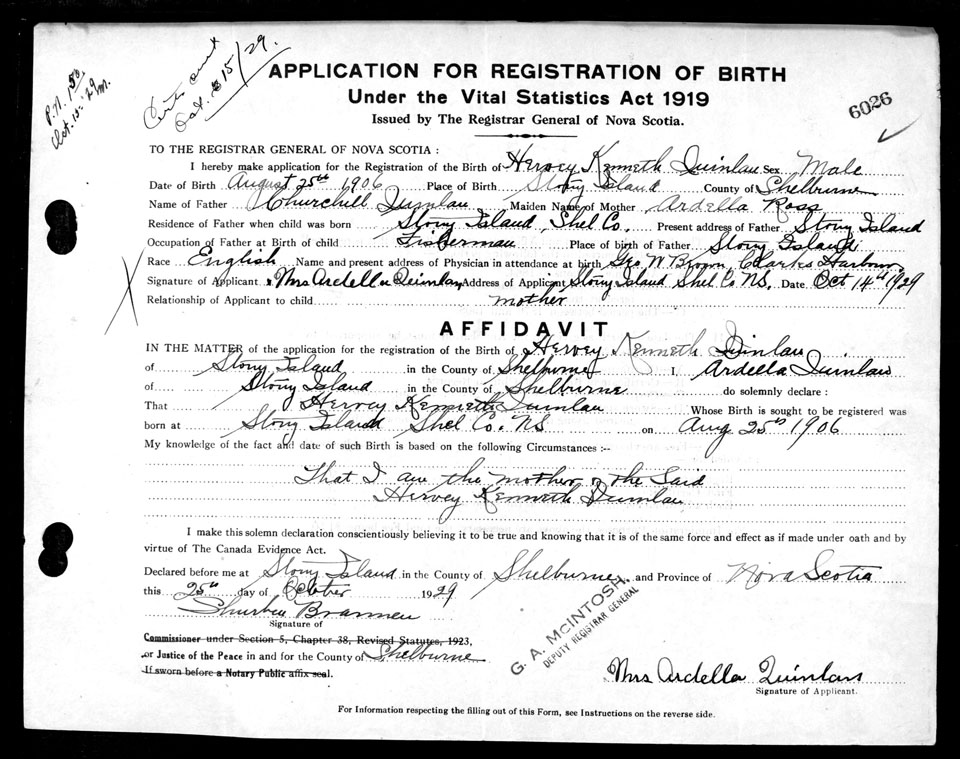 P.N. 1.50
Oct. 15-29 m.
Certs sent
Oct. 15/29.
APPLICATION FOR REGISTRATION OF BIRTH
Under the Vital Statistics Act 1919
Issued by The Registrar General of Nova Scotia.
6026
TO THE REGISTRAR GENERAL OF NOVA SCOTIA :
I hereby make application for the Registration of the Birth of Hervey Kenneth Quinlan Sex Male
Date of Birth August 25th 1906 Place of Birth Stony Island County of Shelburne
Name of Father Churchill Quinlan Maiden Name of Mother Ardella Ross
Residence of Father when child was born Stony Island, Shel Co. Present address of Father Stony Island
Occupation of Father at Birth of child Fisherman Place of birth of Father Stony Island
Race English Name and present address of Physician in attendance at birth Geo W Brown, Clarks Harbour
Signature of Applicant Mrs Ardella Quinlan Address of Applicant Stony Island Shel Co NS. Date Oct 14th 1929
Relationship of Applicant to child mother
AFFIDAVIT
IN THE MATTER of the application for the registration of the Birth of Hervey Kenneth Quinlan
of Stony Island in the County of Shelburne I, Ardella Quinlan
of Stony Island in the County of Shelburne do solemnly declare :
That Hervey Kenneth Quinlan Whose Birth is sought to be registered was
born at Stony Island Shel Co. NS on Aug 25th 1906
My knowledge of the fact and date of such Birth is based on the following Circumstances :--
That I am the mother of the Said
Hervey Kenneth Quinlan
I make this solemn declaration conscientiously believing it to be true and knowing that it is of the same force and effect as if made under oath and by
virtue of The Canada Evidence Act.
Declared before me at Stony Island in the County of Shelburne and Province of Nova Scotia
this 25th day of October 1929
Brannen
Signature of
Commissioner under Section 5, Chapter 38, Revised Statutes, 1923,
or Justice of the Peace in and for the County of Shelburne
If sworn before a Notary Public affix seal.
G. A. McINTOSH,
DEPUTY REGISTRAR GENERAL
Mrs Ardella Quinlan
Signature of Applicant.
For Information respecting the filling out of this Form, see Instructions on the reverse side.